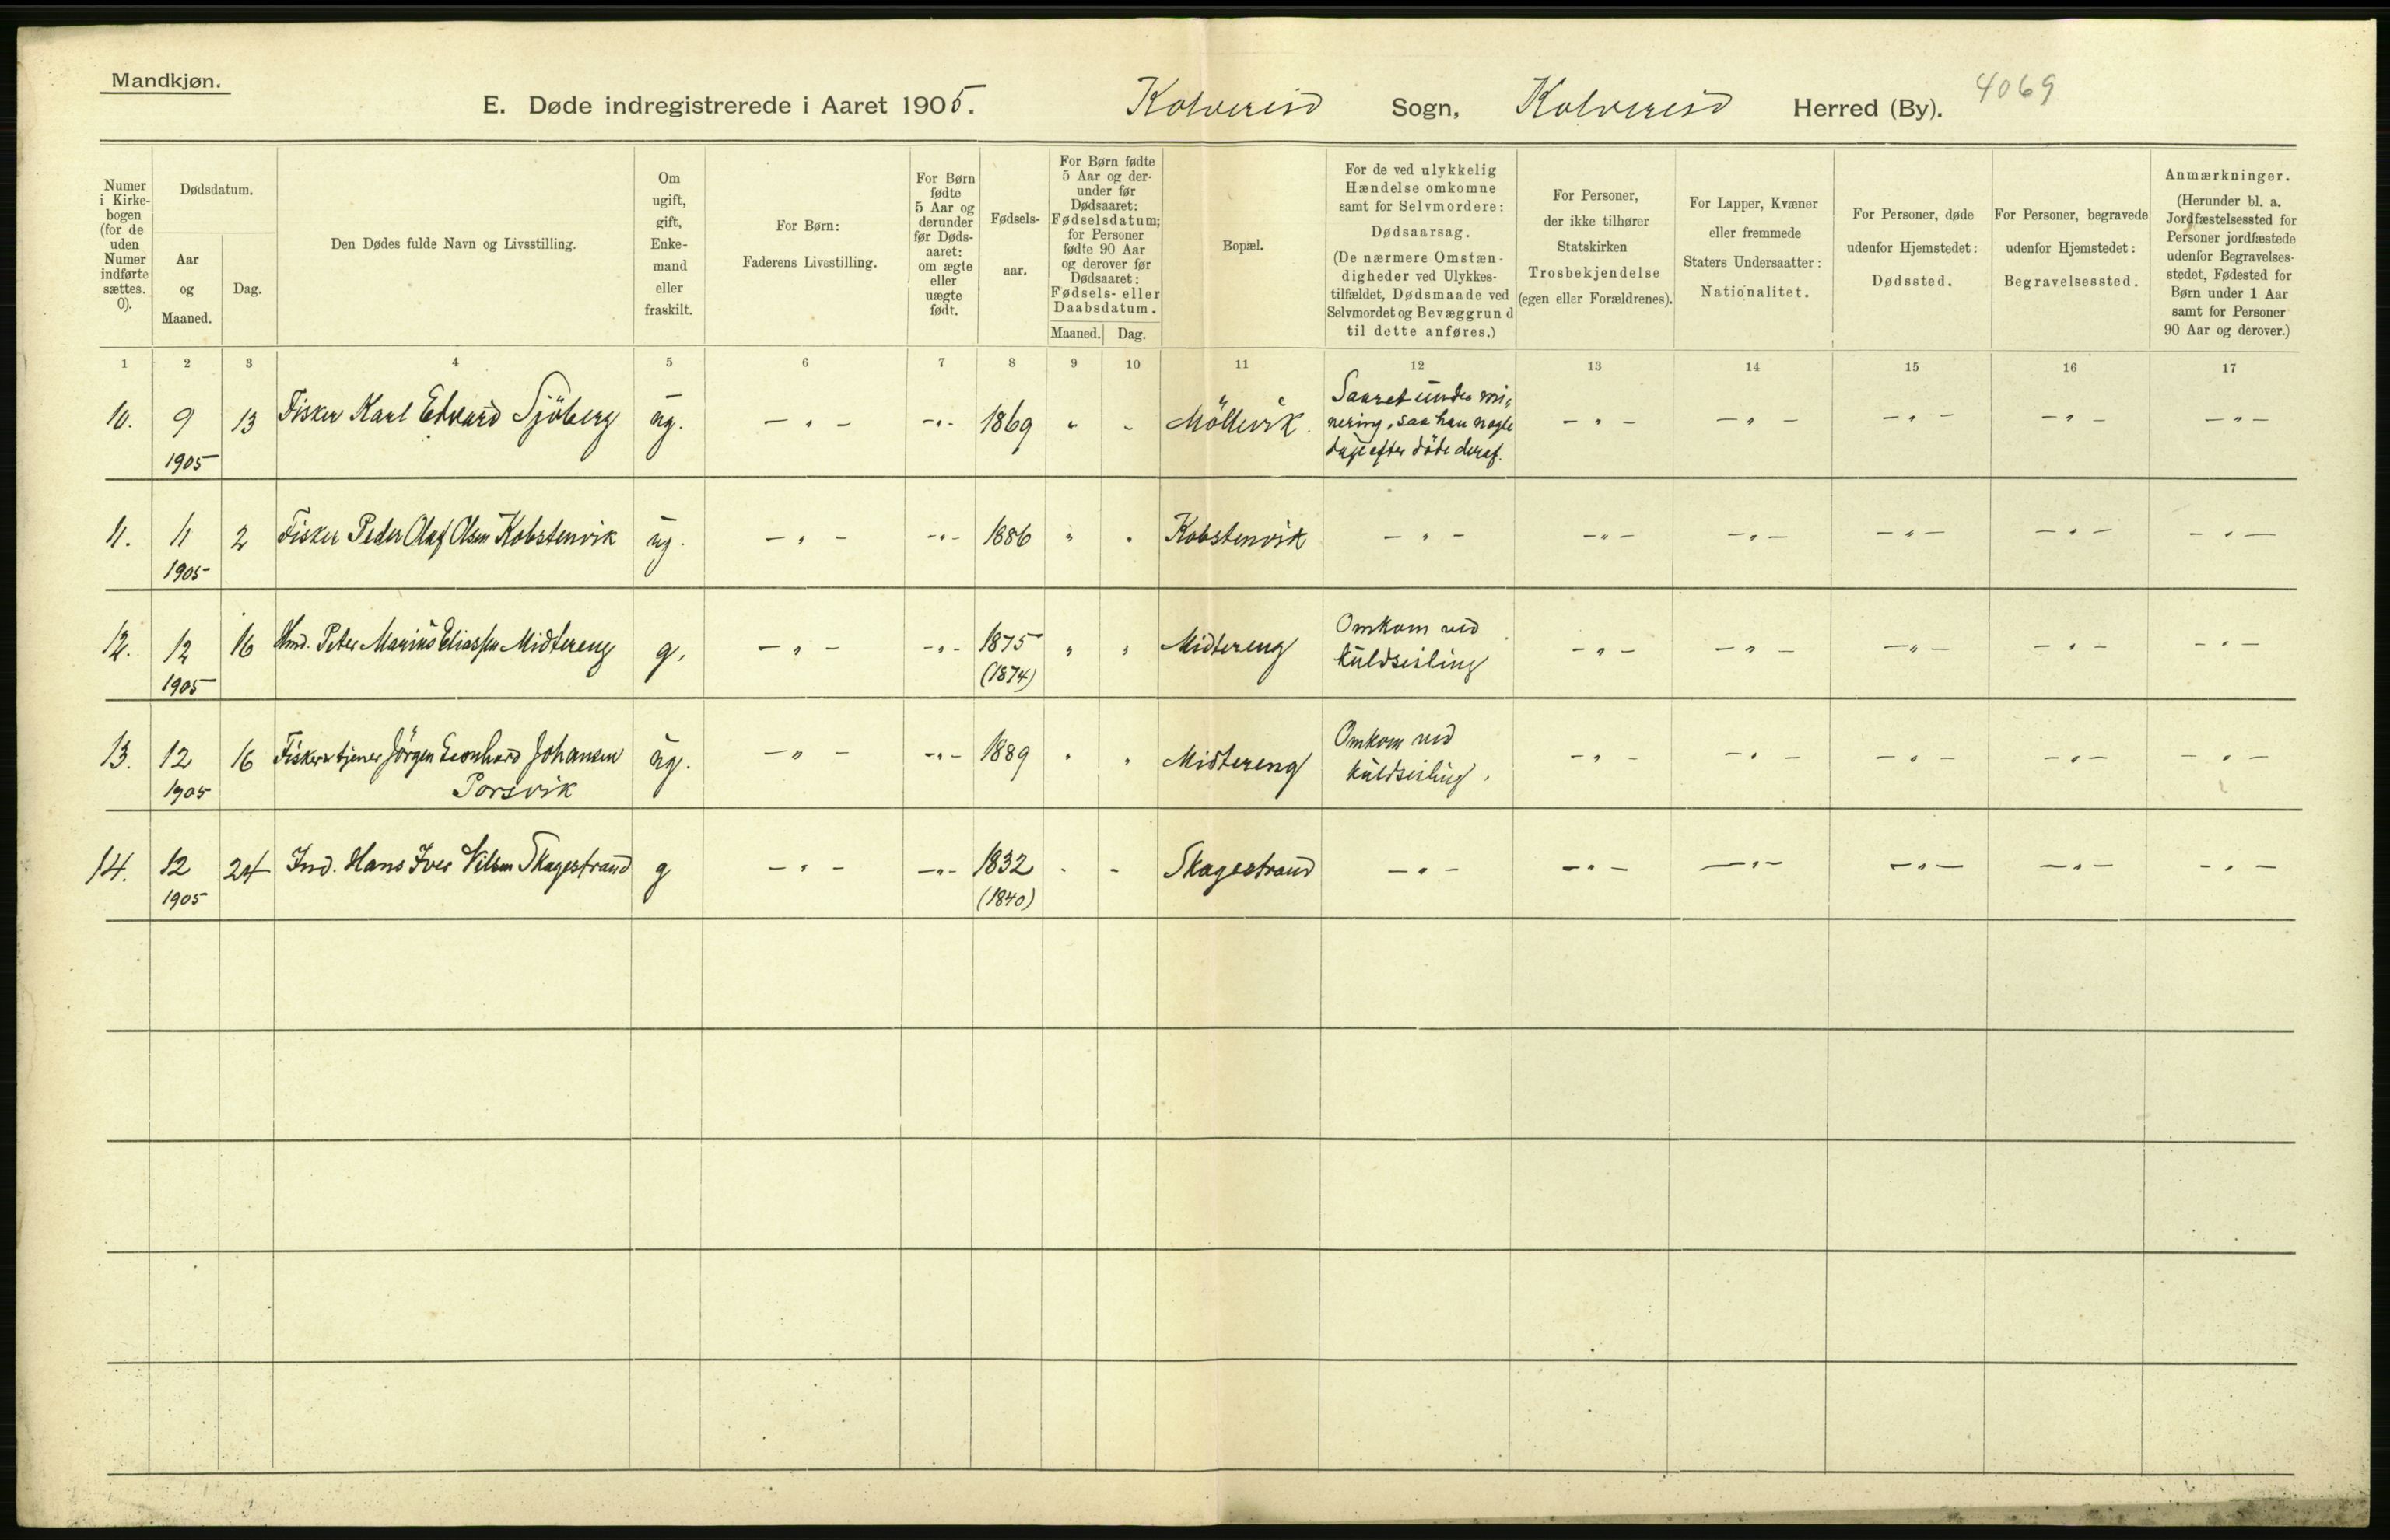 Mandkjøn.
E. Døde indregistrerede i Aaret 1905. Kolvereid Sogn, Kolvereid Herred (By). 4069
Numer
i Kirke-
bogen
(for de
uden
Numer
indførte
sættes.
0).
Dødsdatum.
Aar
og
Maaned.
Dag.
Den Dødes fulde Navn og Livsstilling.
Om
ugift,
gift,
Enke-
mand
eller
fraskilt.
For Børn:
Faderens Livsstilling.
For Børn
fødte
5 Aar og
derunder
før Døds-
aaret:
om ægte
eller
uægte
født.
Fødsels-
aar.
For Børn fødte
5 Aar og der-
under før
Dødsaaret:
Fødselsdatum;
for Personer
fødte 90 Aar
og derover før
Dødsaaret:
Fødsels- eller
Daabsdatum.
Maaned. Dag.
Bopæl.
For de ved ulykkelig
Hændelse omkomne
samt for Selvmordere:
Dødsaarsag.
(De nærmere Omstæn-
digheder ved Ulykkes-
tilfældet, Dødsmaade ved
Selvmordet og Bevæggrund
til dette anføres.)
For Personer,
der ikke tilhører
Statskirken
Trosbekjendelse
(egen eller Forældrenes).
For Lapper, Kvæner
eller fremmede
Staters Undersaatter:
Nationalitet.
For Personer, døde
udenfor Hjemstedet:
Dødssted.
For Personer, begravede
udenfor Hjemstedet:
Begravelsessted.
Anmærkninger.
(Herunder bl. a.
Jordfæstelsessted for
Personer jordfæstede
udenfor Begravelses-
stedet, Fødested for
Børn under 1 Aar
samt for Personer
90 Aar og derover.)
1 2 3 4 5 6 7 8 9 10 11 12 13 14 15 16 17
10. 9 13 Fisker Karl Edvard Sjöberg ug. - " - - " - 1869 " " Möllevik. Saaret under mi„ - " - - " - - " - - " - - " -
nering, saa han nogle
1905 dage efter döde deraf.
11. 11 2 Fisker Peder Olaf Olsen Kobstenvik ug. - " - - " - 1886 " " Kobstenvik - " - - " - - " - - " - - " - - " -
1905
12. 12 16 Hmd. Peter Marius Eliassen Midtereng g. - " - - " - 1875 " " Midtereng Omkom ved - " - - " - - " - - " - - " -
1905 (1874) kuldseiling
13. 12 16 Fiskertjener Jörgen Leonhard Johansen ug. - " - - " - 1889 " " Midtereng Omkom ved - " - - " - - " - - " - - " -
1905 Porsvik kuldseiling.
14. 12 24 Ind. Hans Iver Nilsen Skagestrand g - " - - " - 1832 " " Skagestrand - " - - " - - " - - " - - " - - " -
1905 (1840)